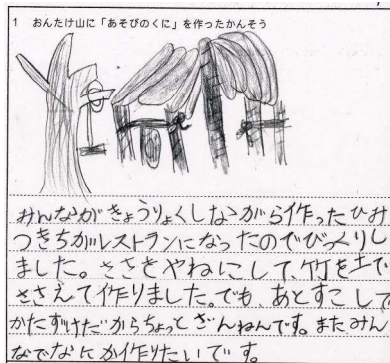 1 おんたけ山に「あそびのくに」を作ったかんそう
みんながきょうりょくしながら作ったひみ
つきちがレストランになったのでびっくりし
ました。ささをやねにして、竹を土で
ささえて作りました。でも、あとすこしで
かたずけだからちょっとざんねんです。またみん
なでなにか作りたいです